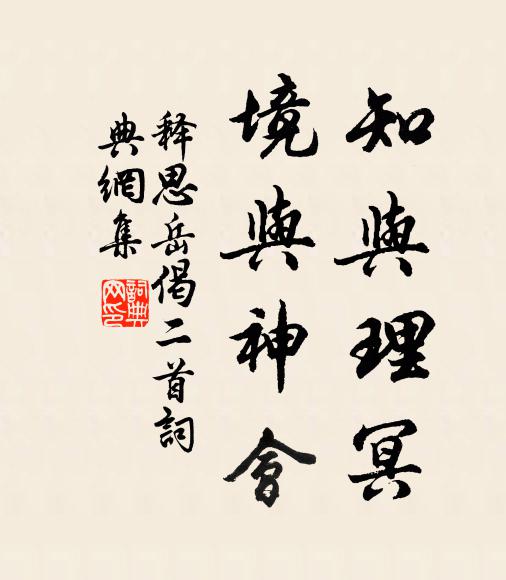 知與理冥
境與神會
释思岳偈二首詞
典網集
詞典
网印